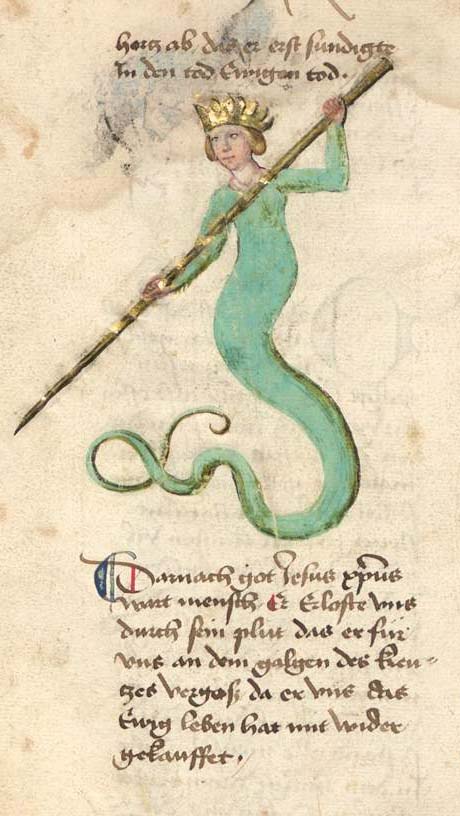 hertz ab das er erst sundigte
In den tod Ewigen tod.
Darnach got Jesus xp̄us
wart mensch Er Erloste vns
durch sein plut das er für
vns an dem galgen des kreu=
tzes vergosz da er vns das
Ewig leben hat mit wider
gekauffet.